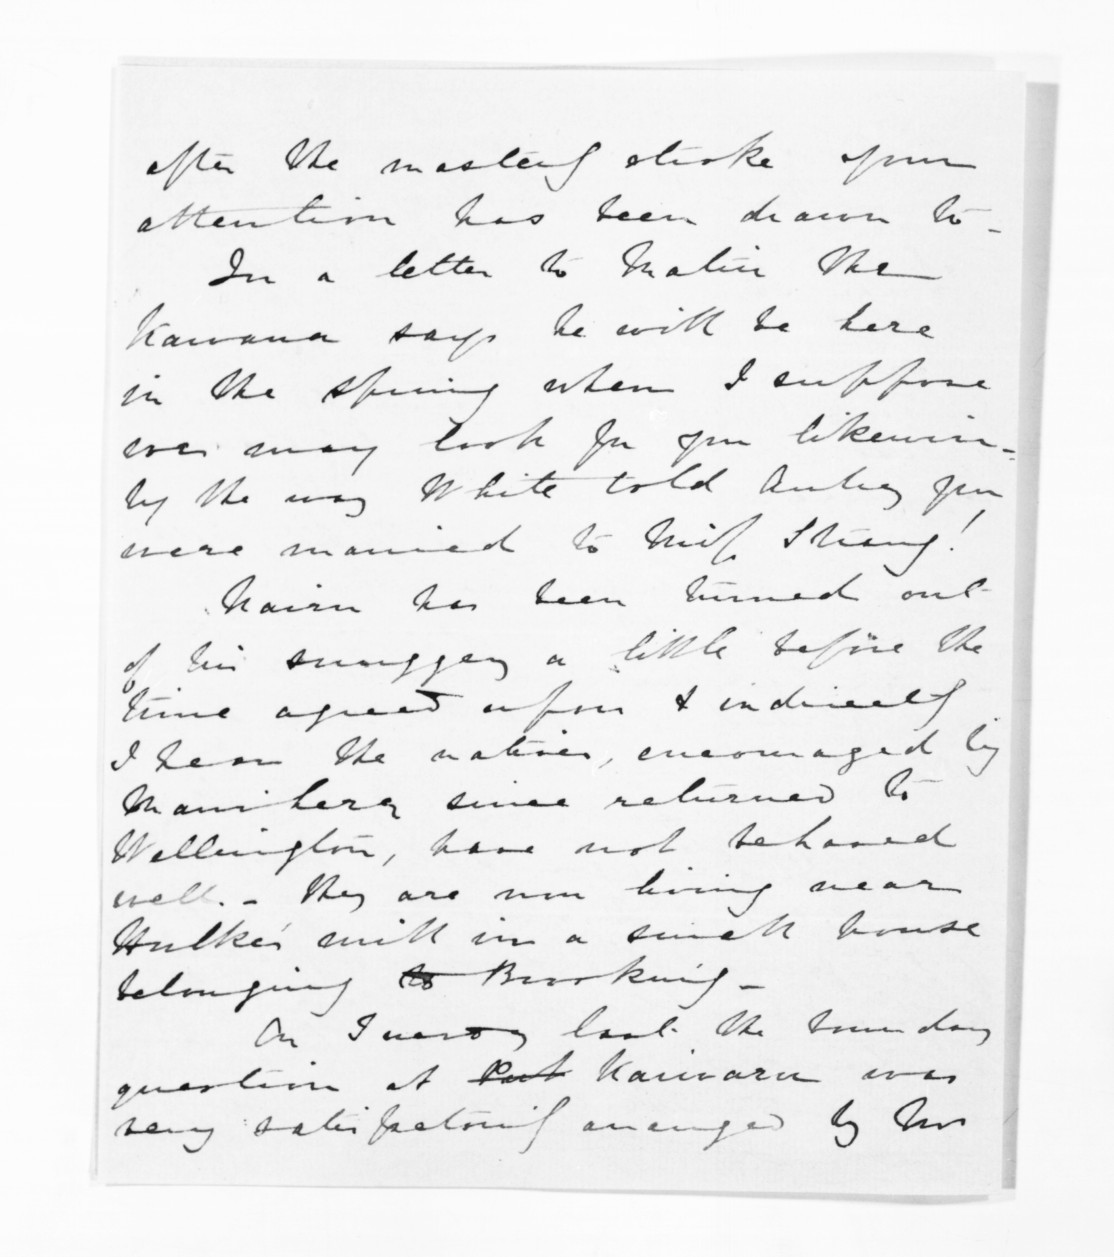 after the masterly stroke your
attention has been drawn to -
In a letter to Matiu the
Kawana says he will be here
in the spring when I suppose
we may look for you likewise -
by the way White told Aubrey you
were married to Miss Strang!
Nairn has been turned out
of his snuggery a little before the
time agreed upon & indirectly
I hear the natives, encouraged by
Manihera since returned to
Wellington, have not behaved
well. - They are now living near
Hulke's mill in a small house
belonging to Brooking -
On Tuesday last the boundary
question at Kaiwaru was
very satisfactorily arranged by Mr